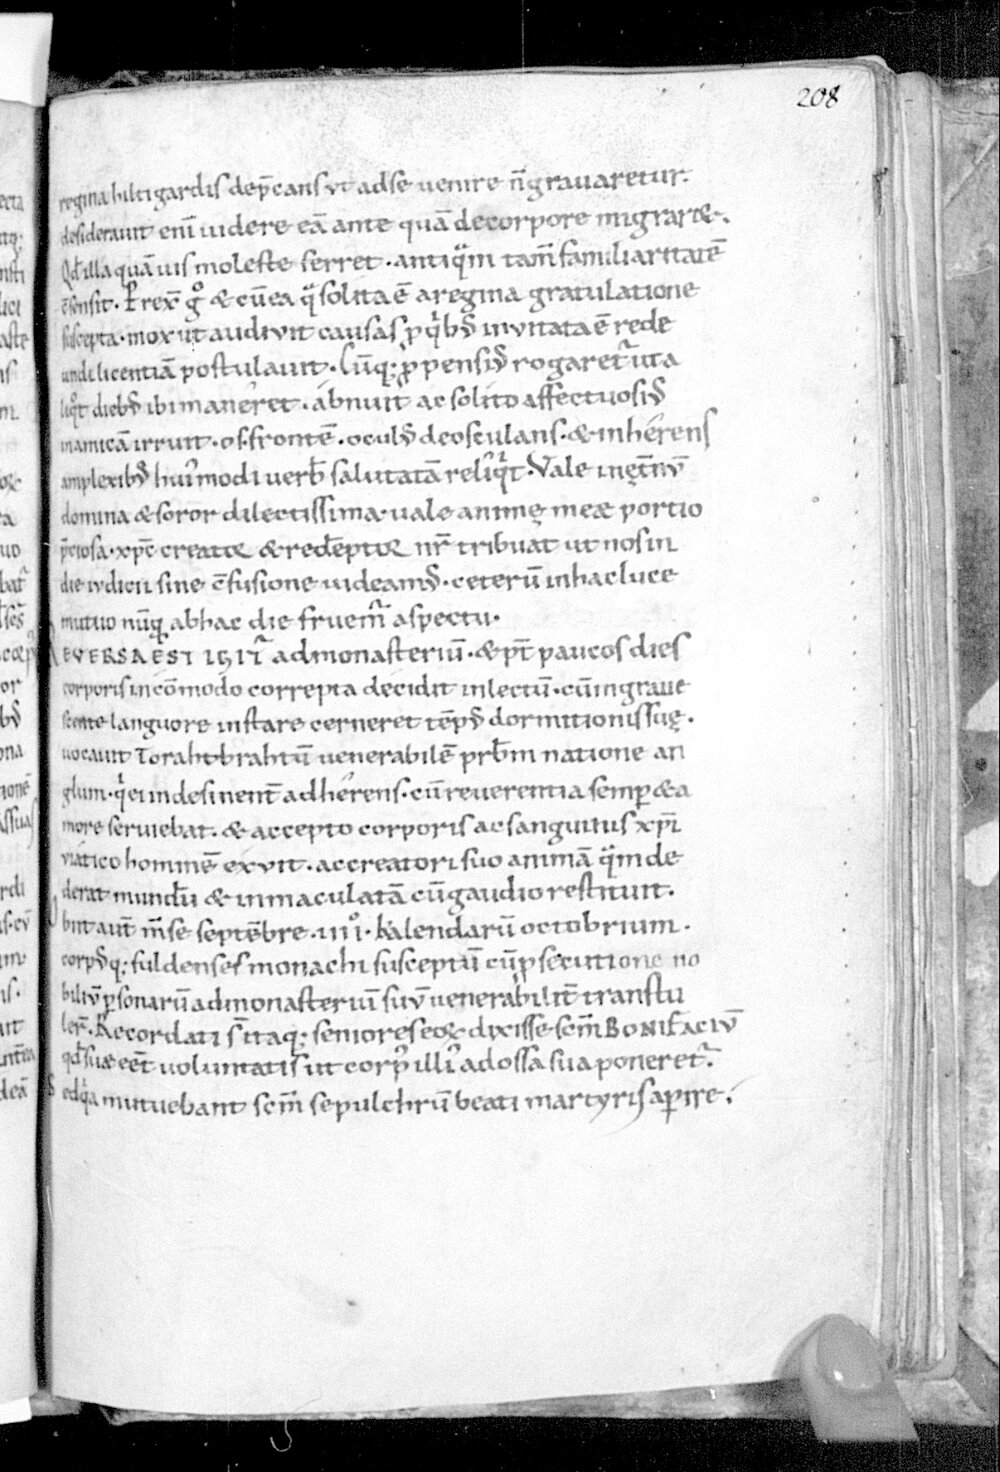 208
regina hiltigardis dep̄cans ut ad se uenire n̄ grauaretur.
desiderauit eni᷒ uidere eā ante quā de corpore migraret.
Qd̄ illa quāuis moleste ferret. antiquam tam̄ familiaritatē
c̄sensit. Prex̄ gͦ & cū ea qͣ solita ē a regina gratulatione
suscepta. mox ut audiuit causas p̱ qⁱb; inuitata ē rede
undi licentiā postulauit. Cūq; p̱pensi᷒ rogaret᷑ ut a
liqͦt dieb; ibi maneret. abnuit ac solito affectuosi᷒
in amicā irruit. os. frontē. ocul᷒ deosculans. & inherens
amplexib; hui᷒modi uerb̄ salutatā reliqⁱt. Vale in ęt̄nū
domina & soror dilectissima. uale animę meæ portio
p̄ciosa. xpc̄ creator & redēptor nr̄ tribuat ut nos in
die iudicii sine c̄fusione uideam᷒. ceterū in hac luce
mutuo nūq̄ ab hac die fruem᷑ aspectu.
REVERSA EST IGIT᷑ ad monasteriū. & p᷒t paucos dies
corporis incōmodo correpta decidit in lectū. cū ingraue
scente languore instare cerneret tēp᷒ dormitionis suę.
uocauit Torahtbrahtū uenerabilē prb̄m natione an
glum. qⁱ ei indesinent̄ adherens. cū reuerentia semp̱ & a
more seruiebat. & accepto corporis ac sanguinis xp̄i
uiatico hominē exuit. ac creatori suo animā quam de
derat mundā & inmaculatā cū gaudio restituit.
Obiit aut̄ m̄se septēbre. IIIIͦ. Kalendarū octobrium.
corp᷒q; fuldenses monachi susceptū cū p̱secutione no
biliū p̱sonarū ad monasteriū suū uenerabilit̄ transtu
ler̄. Recordati s̄ itaq; seniores eor̄ dixisse scm̄ BONIFACIŪ
qd̄ suæ eēt uoluntatis ut corp᷒ illi᷒ ad ossa sua poneret᷑.
Sed qⁱa mutuebant scm̄ sepulchrū beati martyris ap̱ire.